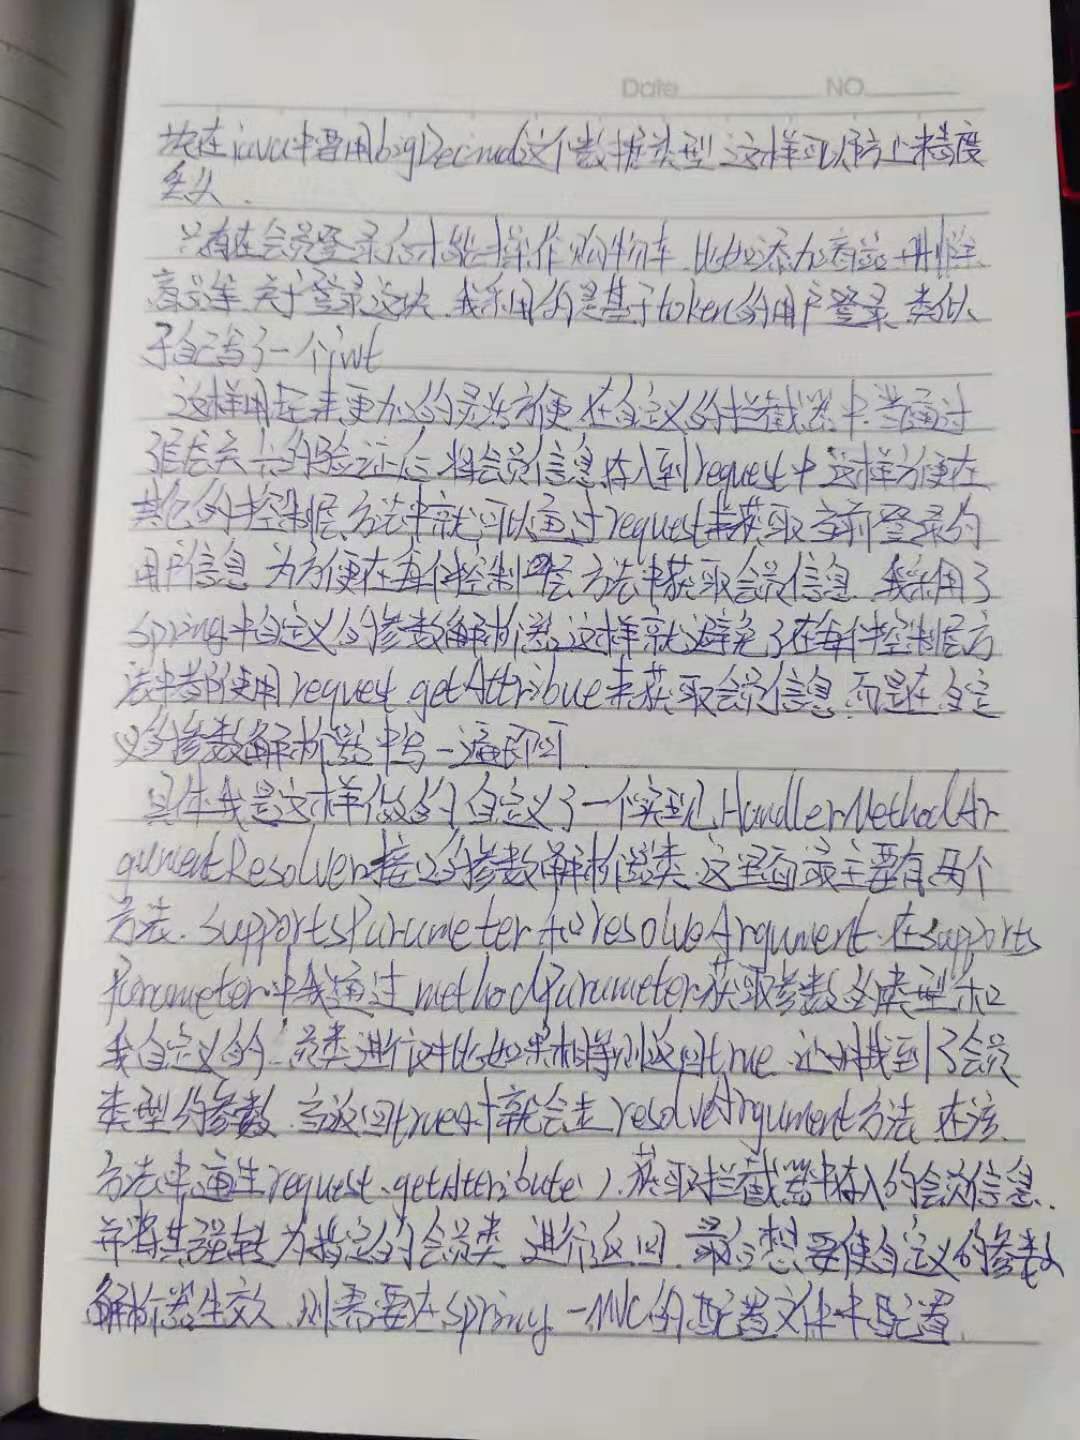 Date NO
在java中要用bigDecimal这个数据类型 这样可以防止精度
丢失.
只有在会员登录后才能操作购物车 比如添加商品 删除
商品等 关于登录这块 我采用的是基于token的用户登录 类似
于自己写了一个jwt
这样用起来更加的灵活方便 在自定义的拦截器中 当通过
层层关卡的验证后 将会员信息存入到request中 这样方便在
其它的控制层方法中就可以通过request来获取当前登录的
用户信息 为方便在每个控制层方法中获取会员信息 我采用了
spring中自定义的参数解析器 这样就避免了在每个控制层方
法中都使用request.getAttribue来获取会员信息 而是在自定
义的参数解析器中写一遍即可.
具体我是这样做的 自定义了一个实现HandlerMethodAr
gumentResolver接口的参数解析器类 这里面最主要有两个
方法. SupportsParameter和resolveArgument 在supports
Parameter中我通过methodParameter获取参数的类型和
我自定义的 员类进行对比 如果相等则返回true 证明找到了会员
类型的参数 当返回true时就会走resolveArgument方法 在该
方法中通过request.getAttribute().获取拦截器中存入的会员信息.
并将其强转为指定的会员类 进行返回 最后想要使自定义的参数
解析器生效 则需要在spring-MVC的配置文件中配置.